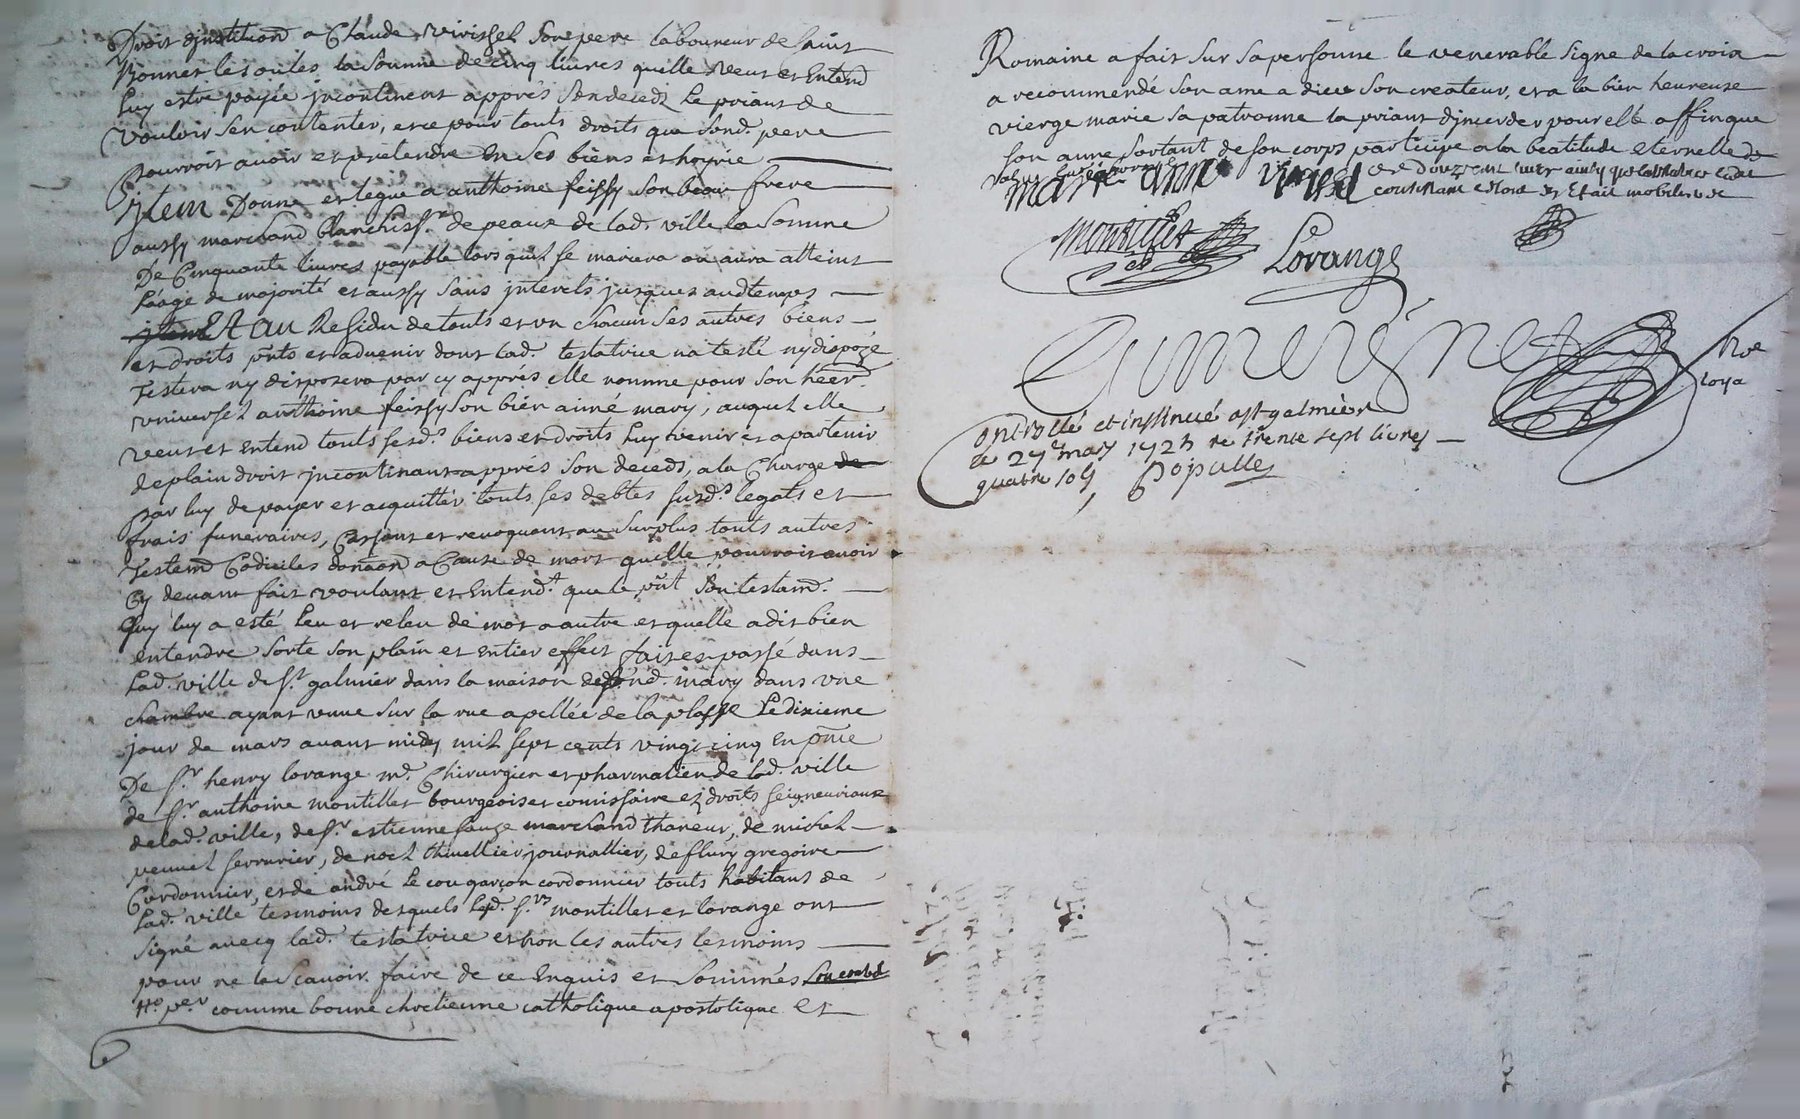 Droit djnstituon a Claude virissel son pere laboureur de saint
Bonnet les oules la somme de cinq livres quelle veut et Entend
luy estre payée jncontinent apprés son deceds le priant de
vouloir sen contenter, et ce pour touts droits que sond. pere
pourroit avoir et pretendre En ses biens et hoyrie
Jtem Donne et legue a anthoine feissy son beau frere
aussy marchand Blanchiss.r de peaux de lad. ville la somme
De Cinquante livres payable lors quil se mariera ou aura atteint
laage de majorité et aussy sans jnterets jusques audtemps
Et Au Residu de touts et un chacun ses autres biens
et droits pñts et advenir dont lad. testatrice na testé ny dispozé
Testera ny disposera par cy apprés elle nomme pour son heer.
universel anthoine feissy son bien aimé mary, auquel elle
veut et entend touts sesd.s biens et droits luy venir et apartenir
de plain droit jncontinant apprés son deceds, a la Charge de
par luy de payer et acquitter touts ses debtes susd.s legats et
frais funeraires, Cassant et revoquant au surplus touts autres
Testamd Codiciles donaon a Cause de mort quelle pourroit avoir
Cy devant fait voulant et Entend.t que le pñt Son testamd.
Quy luy a esté leu et releu de mot a autre et quelle a dit bien
entendre sorte son plain et entier effect fait et passé dans
lad. ville de s.t galmier dans la maison de sond. mary dans une
chambre ayant vuue sur la rue apellée de la plasse Le dixieme
jour de mars avant midy mil sept cents vingt cinq En pñce
De s.r henry lorange m.e Chirurgien et pharmatien de lad. ville
de s.r anthoine montillet bourgeois et comissaire ez droits seigneuriaux
de lad. ville, de s.r estienne sauze marchand thaneur, de michel
vennet serrurier, de noel thivellier journallier, de flury gregoire
Cordonnier, et de andré le cou garçon cordonnier touts habitans de
lad. ville tesmoins desquels lesd. s.rs montillet et lorange ont
signé avecq lad. testatrice et non les autres tesmoins
pour ne le scavoir faire de ce Enquis et sommés
comme bonne chretienne catholique apostolique et
Romaine a fait sur sa personne le venerable signe de la croix
a recommendé son ame a dieu son createur, et a la bien heureuse
vierge marie sa patronne la priant djnterceder pour elle affin que
son ame sortant de son corps participe a la beatitude eternelle
marie anne virissel
Montillet
Lorange
Controllé et insinué a st galmier
le 27e mars 1725 re trente sept livres
quatre sols